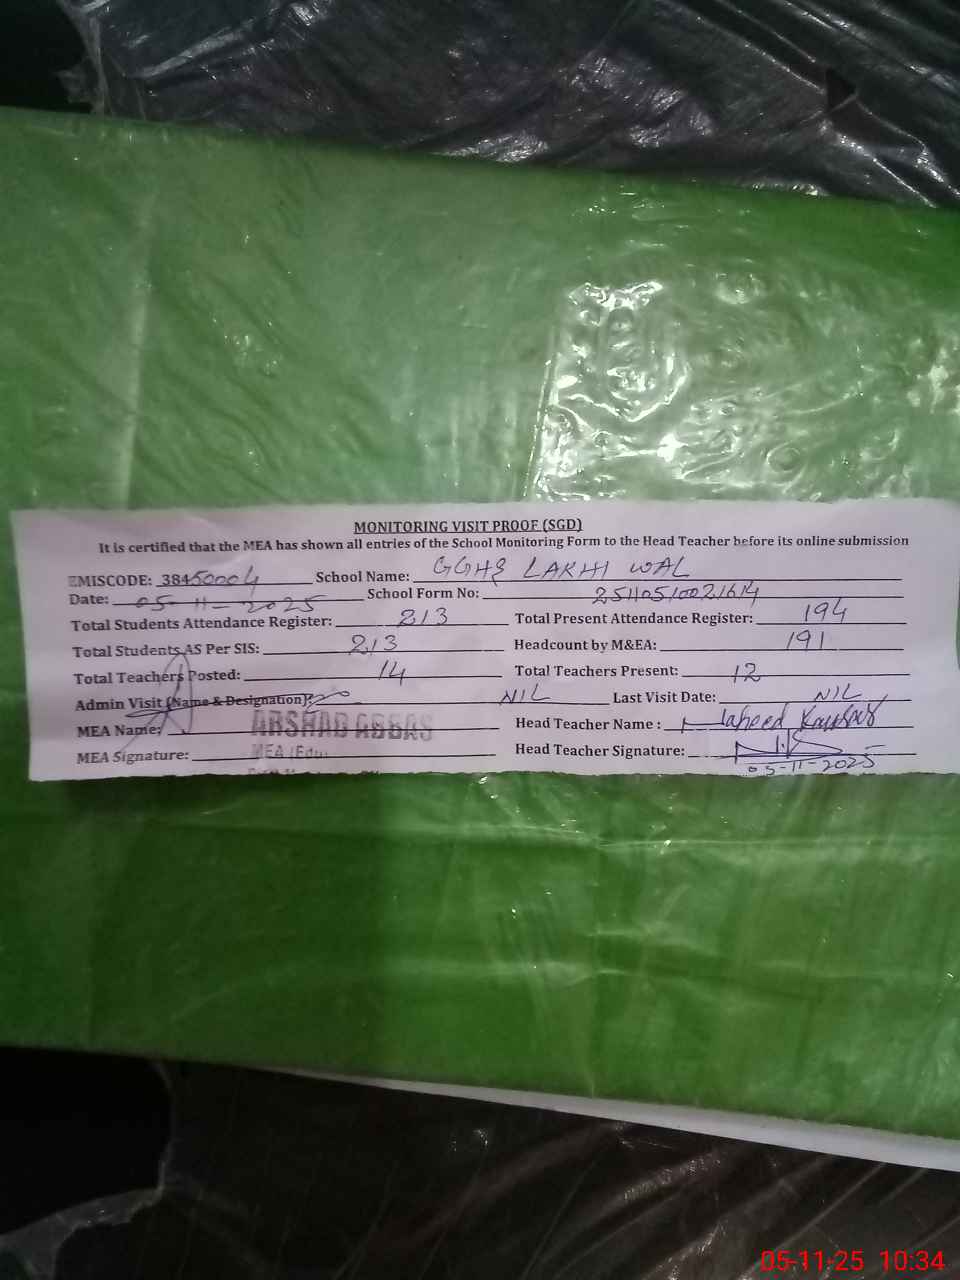 MONITORING VISIT PROOF (SGD)
It is certified that the MEA has shown all entries of the School Monitoring Form to the Head Teacher before its online submission
EMISCODE: 38450004 School Name: GGHS LAKHI WAL
Date: 05-11-2025 School Form No:
Total Students Attendance Register: 213 Total Present Attendance Register: 194
Total Students AS Per SIS: 213 Headcount by M&EA: 191
Total Teachers Posted: 14 Total Teachers Present: 12
Admin Visit (Name & Designation): NIL Last Visit Date: NIL
MEA Name: ARSHAD ABBAS Head Teacher Name : Naheed Kausar
MEA Signature: MEA (Edu) Head Teacher Signature:
05-11-2025
05-11-25 10:34